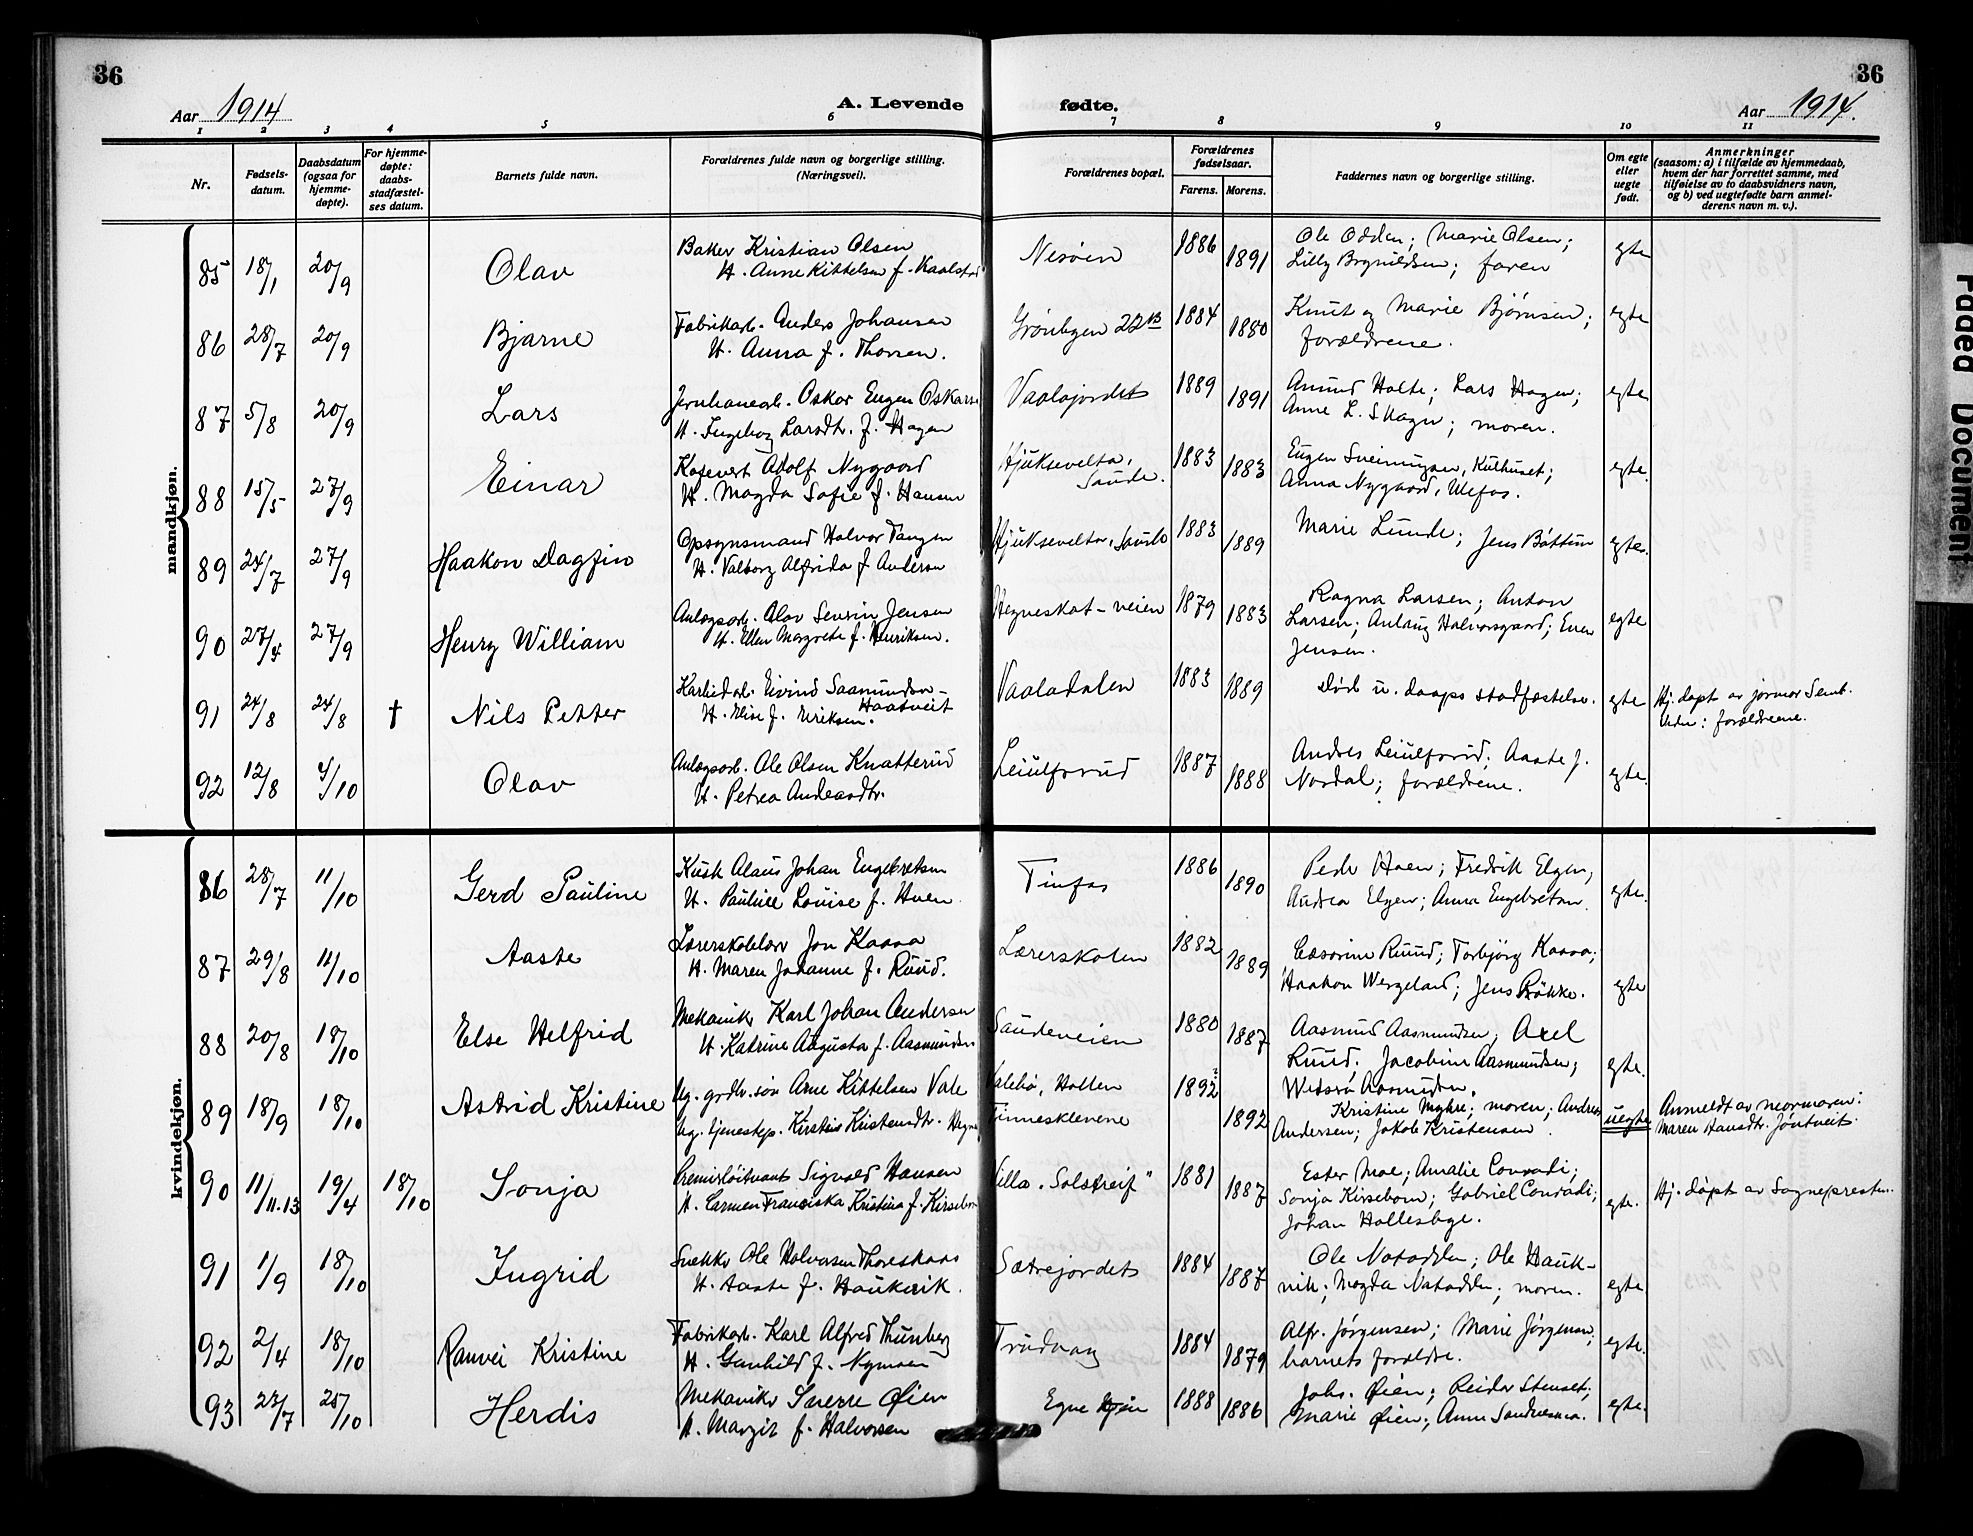 36
36
Aar 1914
A. Levende fødte.
Aar 1914.
1 2 3 4 5 6 7 8 9 10 11
Nr.
Fødsels-
datum.
Daabsdatum
(ogsaa for
hjemme-
døpte).
For hjemme-
døpte:
daabs-
stadfæstel-
ses datum.
Barnets fulde navn.
Forældrenes fulde navn og borgerlige stilling.
(Næringsvei).
Forældrenes bopæl.
Forældrenes
fødselsaar.
Farens. Morens.
Faddernes navn og borgerlige stilling.
Om egte
eller
uegte
født.
Anmerkninger
(saasom: a) i tilfælde av hjemmedaab,
hvem der har forrettet samme, med
tilføielse av to daabsvidners navn,
og b) ved uegtefødte barn anmel-
derens navn m. v.).
mandkjøn.
85 18/1 20/9 Olav
Baker Kristian Olsen
H. Anne Kittelsen f. Kaalstad
Nisøien 1886 1891
Ole Odden; Marie Olsen;
Lilly Brynildsen; faren
egte
86 28/7 20/9 Bjarne
Fabrikarb. Anders Johansen
H. Anna f. Thorsen.
Grønbyen 22B 1884 1880
Knut og Marie Bjørnsen;
forældrene.
egte
87 5/8 20/9 Lars
Jernbanearb. Oskar Eugen Oskarse
H. Ingeborg Larsdtr. f. Hagen
Vaalajordet 1889 1891
Amund Holte; Lars Hagen;
Anne L. Skagn; moren.
egte
88 15/5 27/9 Einar
Adolf Nygaard
H. Magda Sofie f. Hansen
Hjuksevelta,
Saude.
1883 1883
Eugen Kulhuset;
Anna Nygaard, Ulefos.
egte.
89 24/7 27/9 Haakon Dagfin
Opsynsmand Halvor Tangen
H. Valborg Alfrida f. Andersen
Hjuksevelta, Saude 1883 1889
Marie Lunde; Jens Bøttum
egte.
90 27/4 27/9 Henry William
Anlægsarb. Olav Severin Jensen
H. Ellen Margrete f. Henriksen.
Hegneskot-veien 1879 1883
Ragna Larsen; Anton
Larsen; Aslaug Halvorsgaard; Even
Jensen.
egte
91 24/8 24/8 † Nils Petter
Karbidarb. Eivind Saamundsen-
Haatveit
H. Elise f. Eriksen.
Vaaladalen 1883 1889
Død u. daaps stadfæstelse.
egte
Hj. døpt av jormor Semb.
Vidn: forældrene.
92 12/8 4/10 Olav
Anlægsarb. Ole Olsen Knatterud
H. Petrea Andersdtr.
Leiulfsrud 1887 1888
Andres Leiulfsrud; Aaste f.
Nordal; forældrene.
egte.
kvindekjøn.
86 28/7 11/10 Gerd Pauline
Kusk Alaus Johan Engebretsen
H. Pauline Louise f. Huen
Tinfos 1886 1890
Peder Huen; Fredrik Elgen;
Andrea Elgen; Anna Engebretsen
egte.
87 29/8 11/10 Aaste
Lærerskolelær. Jon Kaasa
H. Maren Johanne f. Ruud.
Lærerskolen 1882 1889
Casorine Ruud; Torbjørg Kaasa;
Haakon Wergeland; Jens Røkke.
egte
88 20/8 18/10 Else Helfrid
Mekanik. Karl Johan Andersen
H. Katrine Augusta f. Aasmundsen
Saudeveien 1880 1887
Aasmund Aasmundsen; Axel
Ruud; Jacobine Aasmundsen;
egte.
89 18/9 18/10 Astrid Kristine
Ug. grdbr. søn Arne Kittelsen Vale
Ug. tjenestep. Kirstine Kristensdtr. Hegna
Valebø, Hollen
Tinnesklevene
1892 1892
Kristine Myhre; moren; Andreas
Andersen; Jakob Kristensen
uegte
Anmeldt av mormoren:
Maren Hansdtr. Jøntveit.
90 11/11.13 19/4 18/10 Sonja
Premierløitnant Sigvald Hansen
H. Carmen Franciska Kristina f. Kirsebom
Villa "Solstreif" 1881 1887
Ester Moe; Amalie Conradi;
Sonja Kirsebom; Gabriel Conradi;
Johan Hallesbye.
egte.
Hj. døpt av Sognepresten.
91 1/9 18/10 Ingrid
Snekker Ole Halvorsen Thoreskaas
H. Aaste f. Haukvik.
Sætrejordet 1884 1887
Ole Notodden; Ole Hauk-
vik; Magda Notodden; moren.
egte
92 2/4 18/10 Ranvei Kristine
Fabrikarb. Karl Alfred Thunberg
H. Gunhild f. Nymoen
Trudvang 1884 1879
Alfr. Jørgensen; Marie Jørgensen;
barnets forældre.
egte.
93 23/7 25/10 Herdis
Mekaniker Sverre Øien
H. Margit f. Halvorsen
Egne hjem 1888 1886
Johs. Øien; Reidar Stenset;
Marie Øien; Anna
egte.
Faded Document